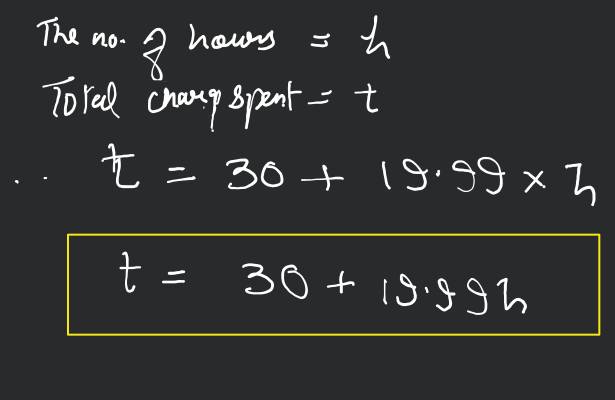 The no. of hours = h
Total charg spent = t
.. t = 30 + 19.99 × h
t = 30 + 19.99h